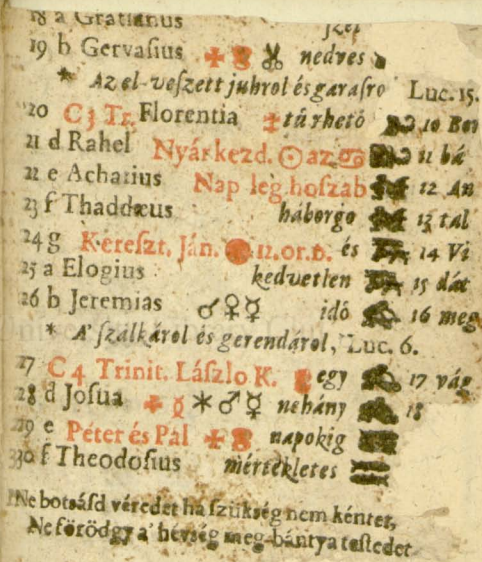 18 a Gratianus
19 b Gervaſius nedves
* Az el-veſzett juhrol és garaſro Luc. 15.
20 C 3 Tr. Florentia tűrhető 10 Bor
21 d Rahel Nyárkezd. ☉ az ♋ 11 bá
22 e Achatius Nap leg hoſzab 12 An
23 f Thaddæus háborgo 13 tal
24 g Kereſzt. Ján. 12. or. D. és 14 Vi
25 a Elogius kedvetlen 15 dát
26 b Jeremias ♂♀☿ idő 16 meg
* A' ſzálkárol és gerendárol, Luc. 6.
27 C 4 Trinit. Láſzlo K. egy 17 vág
28 d Joſua ☿ * ♂ ☿ nehány 18
29 e Péter és Pál napokig
30 f Theodoſius mértékletes
Ne botsásd véredet ha ſzükség nem kénter,
Ne förödgy a' hévség meg-bántya testedet